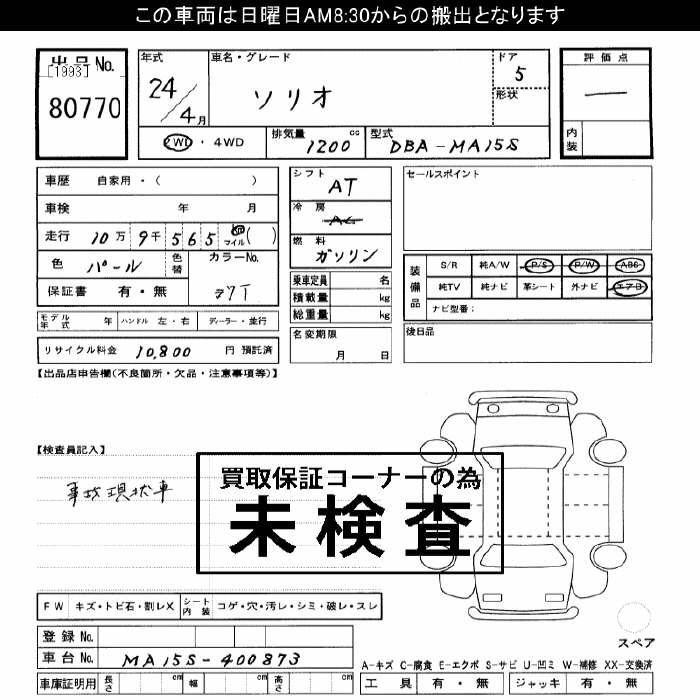 この車両は日曜日AM8:30からの搬出となります
出品No.
[1993]
80770
年式
24/4月
車名・グレード
ソリオ
ドア
5
形状
評価点
—
内装
2WD・4WD
排気量
1200 cc
型式
DBA-MA15S
車歴 自家用・( )
車検 年 月
走行 10万 9千 5 6 5 マイル ( )
色 パール
色替
カラーNo.
保証書 有・無
モデル年式 年 ハンドル 左・右 ディーラー・並行
リサイクル料金 10,800 円 預託済
シフト
AT
冷房
AC
燃料
ガソリン
乗車定員 名
積載量 kg
総重量 kg
名変期限
月 日
セールスポイント
装備品
S/R 純A/W P/S P/W ABS
純TV 純ナビ 革シート 外ナビ エアB
ナビ型番:
後日品
【出品店申告欄(不良箇所・欠品・注意事項等)】
【検査員記入】
事故現状車
買取保証コーナーの為
未検査
FW キズ・トビ石・割レX シート内装 コゲ・穴・汚レ・シミ・破レ・スレ
登録No.
車台No. MA15S-400873
車庫証明用 長さ cm 幅 cm 高さ cm
スペア
A-キズ C-腐食 E-エクボ S-サビ U-凹ミ W-補修 XX-交換済
工具 有・無 ジャッキ 有・無